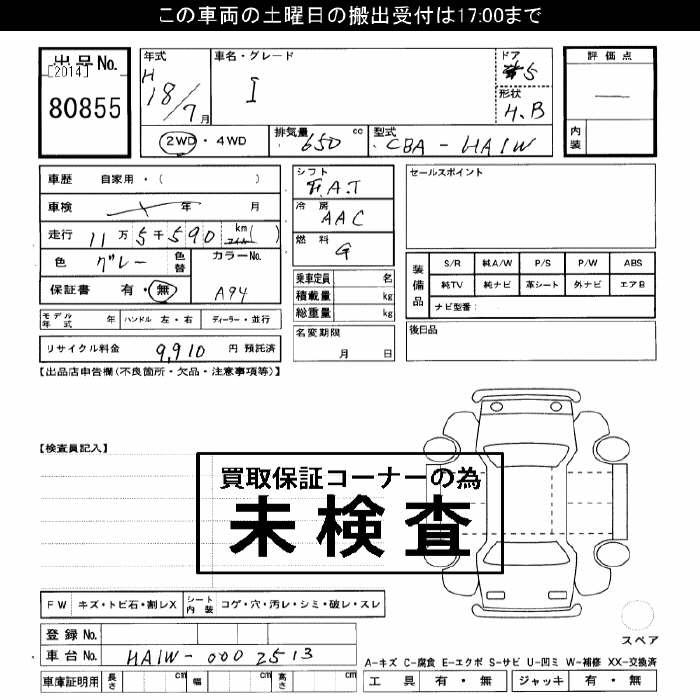 この車両の土曜日の搬出受付は17:00まで
出品No.
[2014]
80855
年式
H
18/7月
車名・グレード
I
ドア
5
形状
H.B
評価点
—
内装
2WD・4WD
排気量 650 cc
型式 CBA-HA1W
車歴 自家用・( )
車検 年 月
走行 11万5千590 km マイル( )
色 グレー
色替
カラーNo.
A94
保証書 有・無
シフト
F.A.T
冷房
AAC
燃料
G
乗車定員 名
積載量 kg
総重量 kg
名変期限
月 日
セールスポイント
装備品
S/R 純A/W P/S P/W ABS
純TV 純ナビ 革シート 外ナビ エアB
ナビ型番:
後日品
モデル年式 年 ハンドル 左・右 ディーラー・並行
リサイクル料金 9,910 円 預託済
【出品店申告欄(不良箇所・欠品・注意事項等)】
【検査員記入】
買取保証コーナーの為
未検査
FW キズ・トビ石・割レX シート内装 コゲ・穴・汚レ・シミ・破レ・スレ
登録No.
車台No. HA1W-0002513
車庫証明用 長さ cm 幅 cm 高さ cm
スペア
A-キズ C-腐食 E-エクボ S-サビ U-凹ミ W-補修 XX-交換済
工具 有・無 ジャッキ 有・無